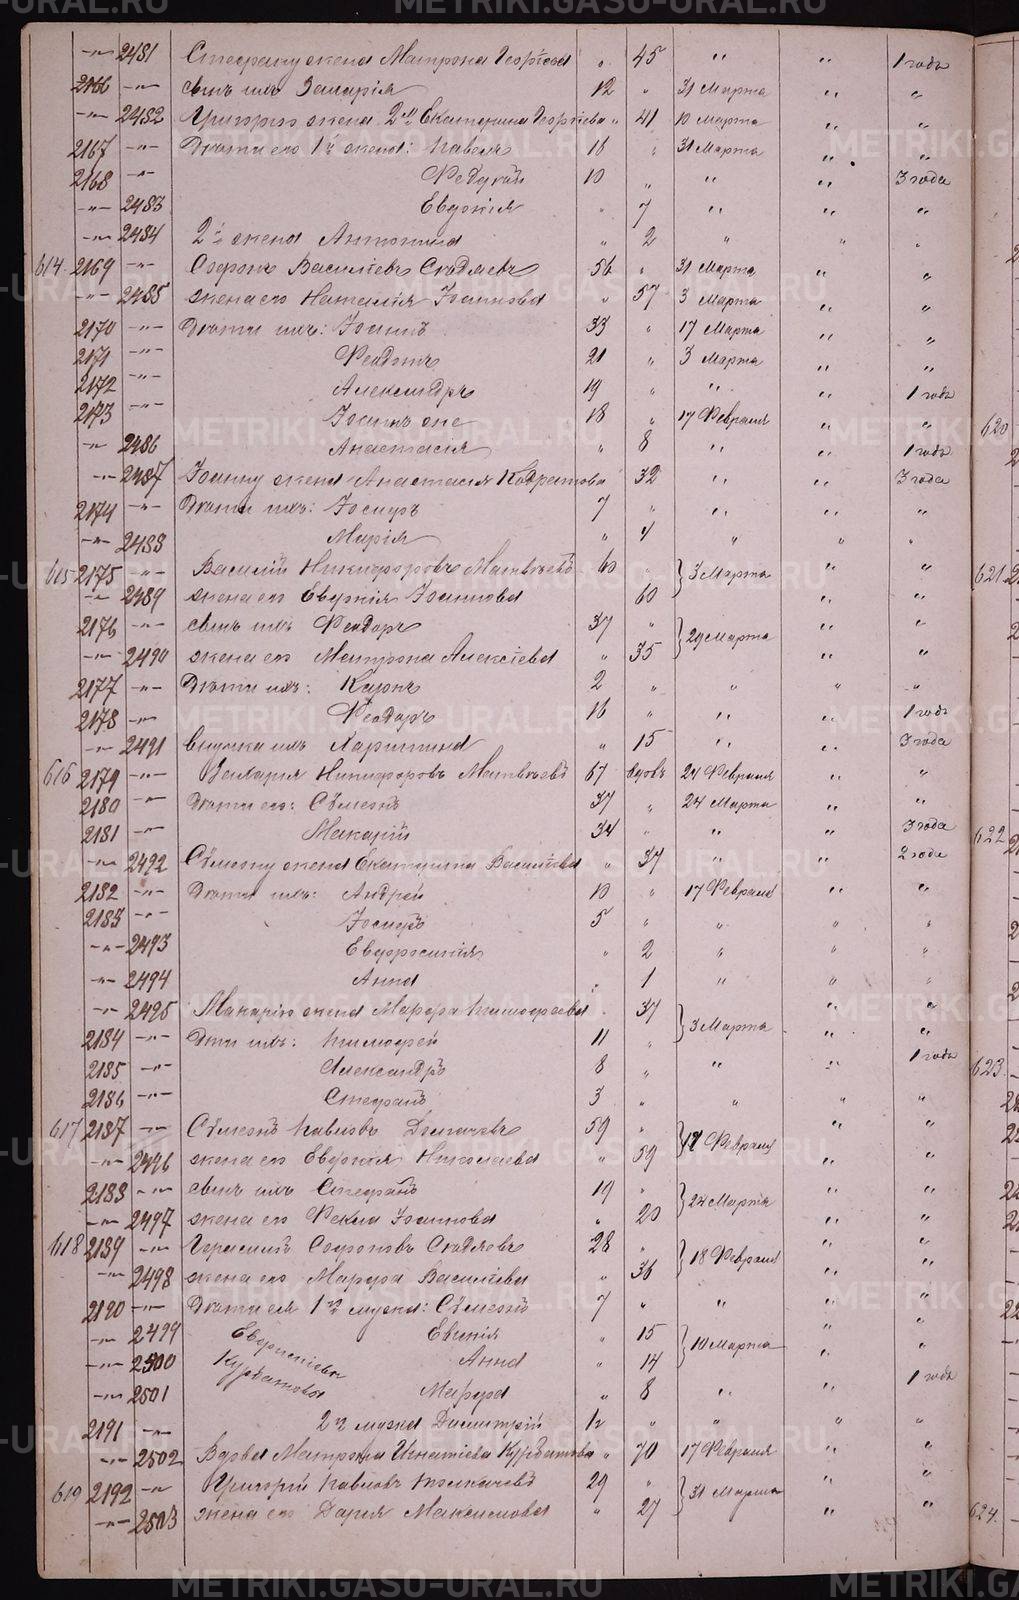 METRIKI.GASO-URAL.RU
-„- 2481 Стефану жена Матрона Георгиева „ 45 „ „ 1 годъ
2166 -„- сынъ ихъ Захарія 12 „ 31 Марта „ „
-„- 2482 Григорію жена 2я Екатерина Георгіева „ 41 10 Марта „ „
2167 -„- Дѣти его 1й жены: Павелъ 16 „ 31 Марта „ „
2168 -„- 10 „ „ „ 3 года
-„- 2483 Евдокія „ 7 „ „ „
-„- 2484 2й жены Антонина „ 2 „ „ „
614 2169 -„- Софонъ Васильевъ 56 „ 31 Марта „ „
-„- 2485 жена его Наталія Іоаннова „ 57 3 Марта „ „
2170 -„- Дѣти ихъ: Іоаннъ 33 „ 17 Марта „ „
2171 -„- Феодотъ 21 „ 3 Марта „ „
2172 -„- Александръ 19 „ „ „ 1 годъ
2173 -„- Іоаннъ же 18 „ 17 Февраля „ „
-„- 2486 Анастасія „ 8 „ „ 1 годъ
-„- 2487 Іоанну жена Анастасія Кодратова „ 32 „ „ 3 года
2174 -„- Дѣти ихъ: Іосифъ 7 „ „ „ „
-„- 2488 Марія „ 4 „ „ „
615 2175 -„- Василій Никифоровъ Матвѣевъ 60 „ 3 Марта „ „
-„- 2489 жена его Евдокія Іоаннова 60 „ „
2176 -„- сынъ ихъ Феодоръ 37 „ 29 Марта „ „
-„- 2490 жена его Матрона Алексіева „ 35 „ „
2177 -„- Дѣти ихъ: Карпъ 2 „ „ „ „
2178 -„- Феодоръ 16 „ „ „ 1 годъ
-„- 2491 внучка ихъ Харитина „ 15 „ „ 3 года
616 2179 -„- Захарія Никифоровъ Матвѣевъ 67 вдовъ 24 Февраля „ „
2180 -„- Дѣти его: Сѵмеонъ 37 „ 24 Марта „ „
2181 -„- Макарій 34 „ „ „ 3 года
-„- 2492 Сѵмеону жена Екатерина Васильева „ 37 „ „ 2 года
2182 -„- Дѣти ихъ: Андрей 10 „ 17 Февраля „ „
2183 -„- Іосифъ 5 „ „ „ „
-„- 2493 Евфросинія „ 2 „ „ „
-„- 2494 Анна „ 1 „ „ „
-„- 2495 Макарію жена Марфа Тимофеева „ 37 3 Марта „ „
2184 -„- Дѣти ихъ: Тимофей 11 „ „ „
2185 -„- Александръ 8 „ „ „ 1 годъ
2186 -„- Стефанъ 3 „ „ „ „
617 2187 -„- Сѵмеонъ Павловъ 59 „ Февраля „ „
-„- 2496 жена его Евдокія Николаева „ 59 „ „
2188 -„- сынъ ихъ Стефанъ 19 „ 24 Марта „ „
-„- 2497 жена его Фекла Іоаннова „ 20 „ „
618 2189 -„- Герасимъ Софоновъ 28 „ 18 Февраля „ „
-„- 2498 жена его Марфа Васильева „ 36 „ „
2190 -„- Дѣти ея 1го мужа: Сѵмеонъ 7 „ „ „ „
-„- 2499 Евгенія „ 15 10 Марта „ „
-„- 2500 Курбатовы Анна „ 14 „
-„- 2501 Марфа „ 8 „ „ 1 годъ
2191 -„- 2го мужа Димитрій „ „ „ „
-„- 2502 Вдова Матрона Игнатіева Курбатова „ 70 17 Февраля „ „
619 2192 -„- Григорій Павловъ 29 „ 31 Марта „ „
-„- 2503 жена его Дарія Максимова „ 27 „ „
620
621
622
623
624